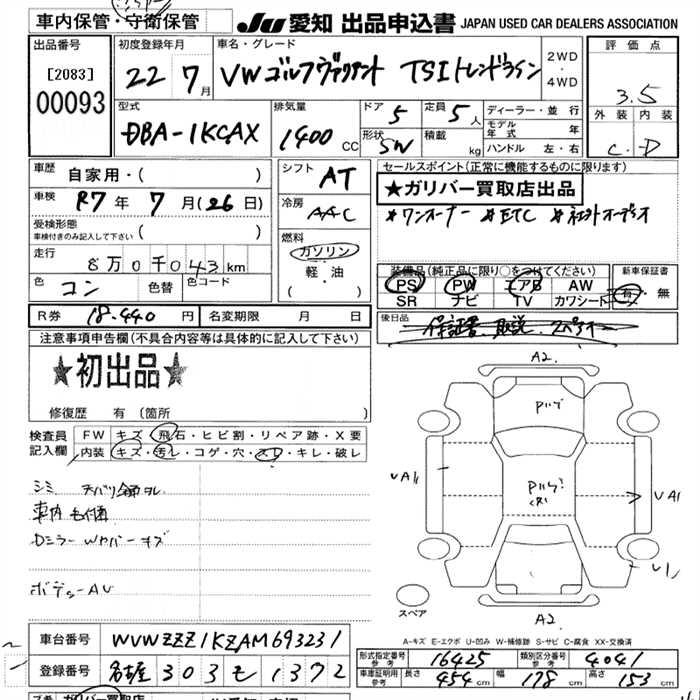 車内保管・守衛保管
JU 愛知 出品申込書 JAPAN USED CAR DEALERS ASSOCIATION
出品番号
[2083]
00093
初度登録年月
22 7月
車名・グレード
VW ゴルフヴァリアント TSIトレンドライン
2WD・4WD
評価点
3.5
外装 内装
C・D
型式
DBA-1KCAX
排気量
1400 CC
ドア 5
形状 SW
定員 5人
積載 kg
ディーラー・並行
モデル年式 年
ハンドル 左・右
車歴 自家用・( )
車検 R7年 7月(26日)
受検形態
車検付きのみ記入して下さい ( )
走行 8万0千043km
色 コン 色替 色コード
シフト AT
冷房 AAC
燃料
ガソリン
軽・油
( )
セールスポイント(正常に機能するものに限ります)
★ガリバー買取店出品
*ワンオーナー *ETC *社外オーディオ
装備品(純正品に限り○をつけてください) 新車保証書
PS PW エアB AW
SR ナビ TV カワシート
有・無
R券 18,440円 名変期限 月 日
後日品 保証書、取説、スペアキー
注意事項申告欄(不具合内容等は具体的に記入して下さい)
★初出品★
修復歴 有(箇所 )
検査員記入欄
FW キズ・飛石・ヒビ割・リペア跡・X要
内装 キズ・汚レ・コゲ・穴・スレ・キレ・破レ
シミ
車内
Dミラー Wカバーキズ
ボデーAU
A2
A2
スペア
A-キズ E-エクボ U-凹み W-補修跡 S-サビ C-腐食 XX-交換済
車台番号 WVWZZZ1KZAM693231
登録番号 名古屋 303 せ 1372
形式指定番号 参考 16425 類別区分番号 参考 4041
車庫証明用 参考 長さ 454cm 幅 178cm 高さ 153cm